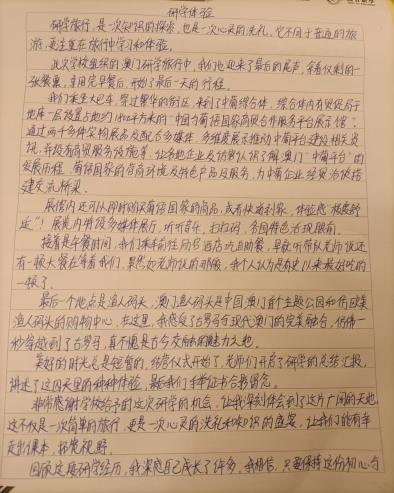 研学体验
研学旅行，是一次知识的探索，也是一次心灵的洗礼，它不同于普通的旅
游，更注重在旅行中学习和体验。
此次学校组织的澳门研学旅行中，我们也迎来了最后的尾声，拿着仅剩的一
张餐票，享用完早餐后，开始了最后一天的行程。
我们乘坐大巴车，穿过繁华的街区，来到了中葡综合体，综合体内有贸促局于
地库一层设置占地约1400平方米的“中国与葡语国家商贸合作服务平台展示馆”。
通过两千多件实物展品及配合多媒体，多维度展示推动中葡平台建设相关资
讯，并设有商贸服务设施等，让各地企业及访客认识了解澳门“中葡平台”的
发展历程，葡语国家的营商环境及特色产品及服务，为中葡企业经贸洽谈搭
建交流桥梁。
展馆内还可以即时购买葡语国家的商品，或有快递到家，体验感
！展览内有设多媒体展厅，听听音乐，扫扫码，各国特色活现眼前。
接着是午餐时间，我们乘车前往励宫酒店吃自助餐，早就听带队老师说还
有一顿大餐在等着我们，果然如老师说的那般，我个人认为是有史以来最好吃的
一顿了。
最后一个地点是渔人码头，澳门渔人码头是中国澳门首个主题公园和仿欧美
渔人码头的购物中心，在这里，我感受了古罗马与现代澳门的完美融合，仿佛一
秒穿越到了古罗马，真不愧是古今交融的魅力之地。
美好的时光总是短暂的，结营仪式开始了，老师们开启了研学的总结汇报，
讲述了这四天里的种种体验，最后我们手举证书合影留念。
非常感谢学校给予的这次研学的机会，让我深刻体会到了这片广阔的天地，
这不仅是一次简单的旅行，更是一次心灵的洗礼和知识的盛宴，让我们能有幸
走出课本，拓展视野。
回顾这段研学经历，我深感自己成长了许多，我相信，只要保持这份初心与